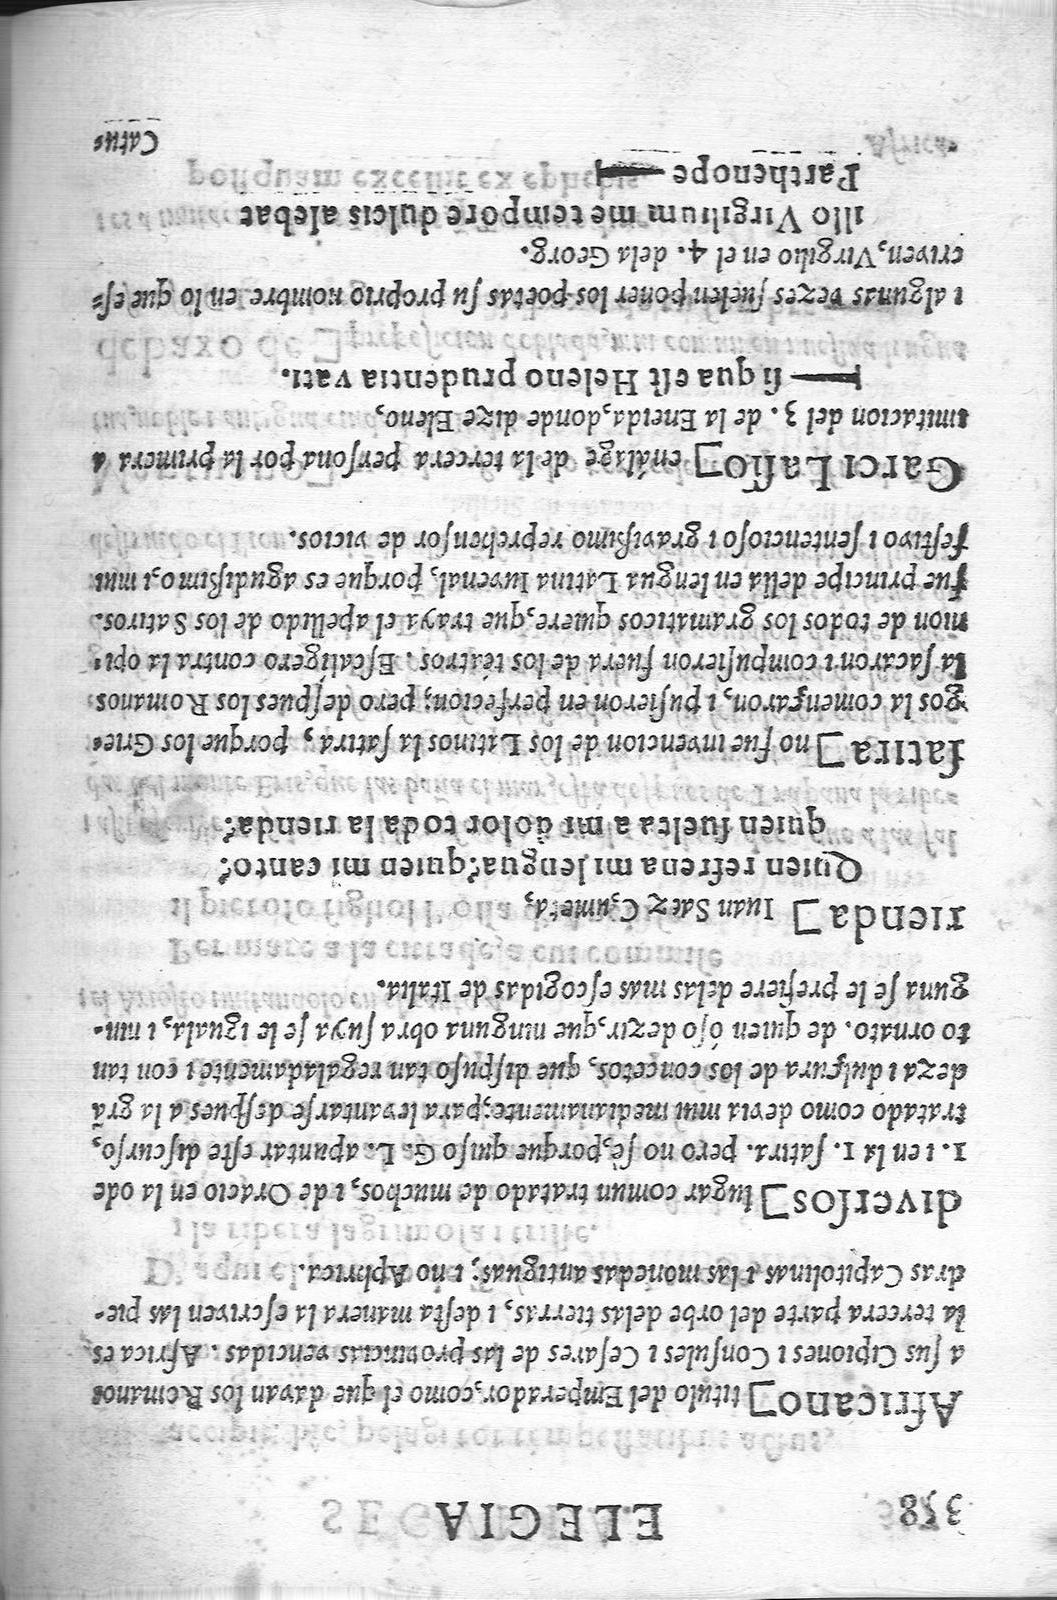 378
ELEGIA
Africano] titulo del Emperador, como el que davan los Romanos
a sus Cipiones i Consules i Cesares de las provincias vencidas. Africa es
la tercera parte del orbe delas tierras, i desta manera la escriven las pie-
dras Capitolinas i las monedas antiguas; i no Aphrica.
diversos] lugar comun tratado de muchos, i de Oracio en la ode
1. i en la 1. satira. pero no sé, porque quiso G. L. apuntar este discurso,
tratado como devia mui medianamente; para levantarse despues a la grã
deza i dulçura de los concetos, que dispuso tan regaladamente i con tan
to ornato. de quien óso dezir, que ninguna obra suya se le iguala, i nin-
guna se le prefiere delas mas escogidas de Italia.
rienda] Iuan Saez Çumeta,
Quien refrena mi lengua? quien mi canto?
quien suelta a mi dolor toda la rienda?
satira] no fue invencion de los Latinos la satira, porque los Grie-
gos la començaron, i pusieron en perfecion; pero despues los Romanos
la sacaron i compusieron fuera de los téatros. Escalígero contra la opi-
nion de todos los gramaticos quiere, que traya el apellido de los Satiros.
fue principe della en lengua Latina Iuvenal, porque es agudissimo i mui
festivo i sentencioso i gravissimo reprehensor de vicios.
Garci Lasso] enálage de la tercera persona por la primera a
imitacion del 3. de la Eneida, donde dize Eleno,
— si qua est Heleno prudentia vati.
i algunas vezes suelen poner los poetas su proprio nombre en lo que es-
criven, Virgilio en el 4. dela Georg.
illo Virgilium me tempore dulcis alebat
Parthenope —
Catu-